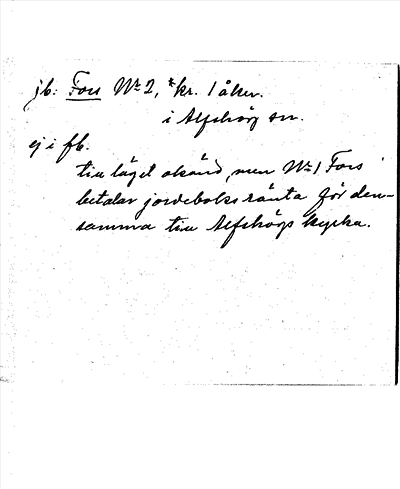 jb: Fors No 2, *kr. 1 åker.
i Alfshög sn.
ej i fb.
till läget okänd, men No 1 Fors
betalar jordeboksränta för den-
samma till Alfshögs kyrka.